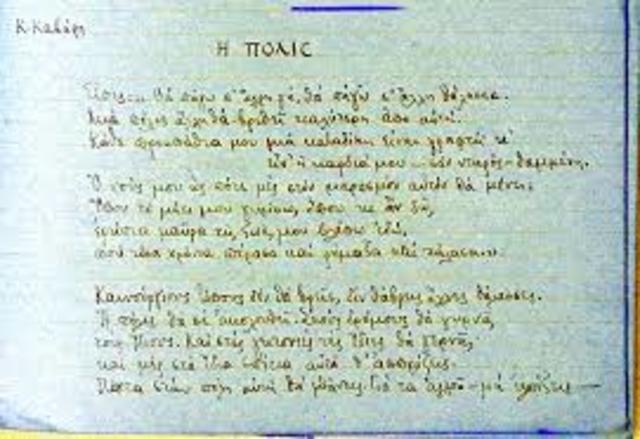 Κ. Καβάφη
Η ΠΟΛΙΣ
θὰ πάγω σ' ἄλλη γῆ, θὰ πάγω σ' ἄλλη θάλασσα.
Μιὰ πόλις ἄλλη θὰ βρεθεῖ καλλίτερη ἀπὸ αὐτή.
Κάθε προσπάθεια μου μιὰ καταδίκη εἶναι γραφτή κ'
εἶν' ἡ καρδιά μου — σὰν νεκρός — θαμμένη.
Ὁ νοῦς μου ὡς πότε μὲς στὸν μαρασμὸν αὐτὸν θὰ μένει.
Ὅπου τὸ μάτι μου γυρίσω, ὅπου κι ἂν δῶ,
ἐρείπια μαῦρα τῆς ζωῆς μου βλέπω ἐδώ,
ποὺ τόσα χρόνια πέρασα καὶ ρήμαξα
Καινούργιους τόπους δὲν θὰ βρεῖς, δὲν θἄβρεις ἄλλες θάλασσες.
Ἡ πόλις θὰ σὲ ἀκολουθεῖ. Στοὺς δρόμους θὰ γυρνᾷς
τοὺς ἴδιους. Καὶ στὲς γειτονιὲς τὲς ἴδιες θὰ γερνᾷς,
καὶ μὲς στὰ ἴδια σπίτια αὐτὰ θ' ἀσπρίζεις.
Πάντα στὴν πόλι αὐτὴ θὰ φθάνεις. Γιὰ τὰ ἀλλοῦ — μὴ ἐλπίζεις —